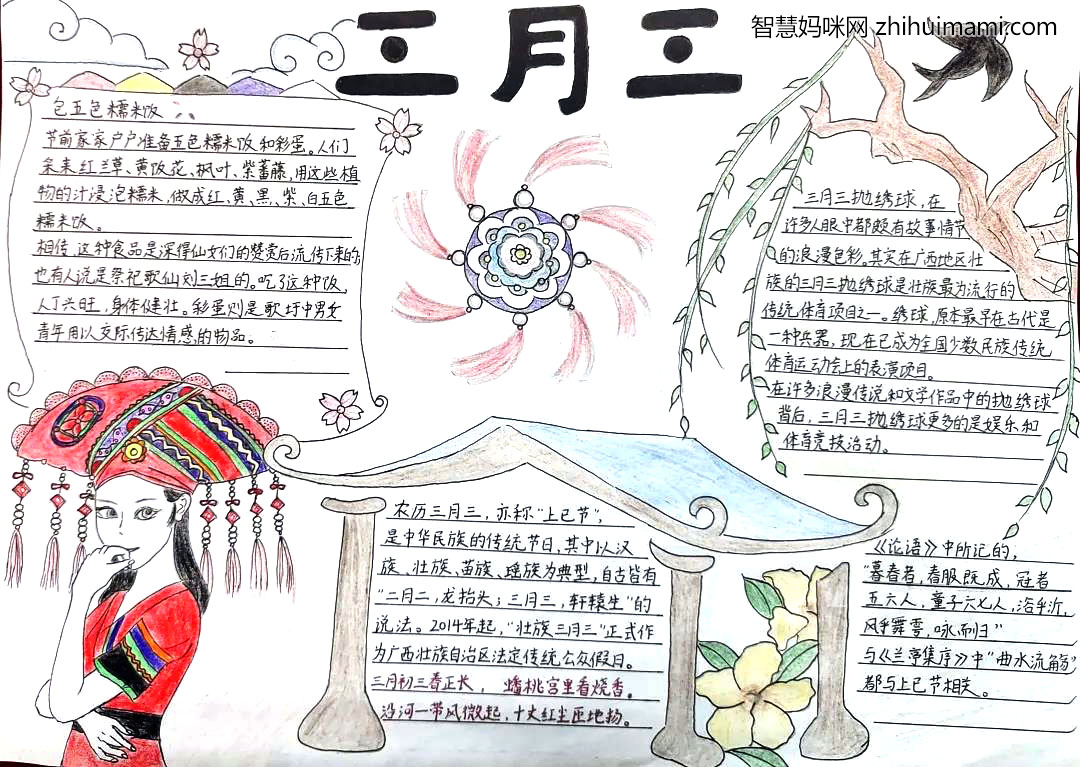 智慧妈咪网 zhihuimami.com
三月三
包五色糯米饭
节前家家户户准备五色糯米饭和彩蛋。人们
条来红兰草、黄饭花、枫叶、紫蕃藤，用这些植
物的汁浸泡糯米，做成红、黄、黑、紫、白五色
糯米饭。
相传，这种食品是深得仙女们的赞赏后流传下来的；
也有人说是祭祀歌仙刘三姐的。吃了这种饭，
人丁兴旺，身体健壮。彩蛋则是歌圩中男女
青年用以交际传达情感的物品。
三月三抛绣球，在
许多人眼中都颇有故事情节
的浪漫色彩。其实在广西地区壮
族的三月三抛绣球是壮族最为流行的
传统体育项目之一。绣球，原本最早在古代是
一种兵器，现在已成为全国少数民族传统
体育运动会上的表演项目。
在许多浪漫传说和文学作品中的抛绣球
背后，三月三抛绣球更多的是娱乐和
体育竞技活动。
农历三月三，亦称"上巳节"，
是中华民族的传统节日，其中以汉
族、壮族、苗族、瑶族为典型，自古皆有
"二月二，龙抬头；三月三，轩辕生"的
说法。2014年起，"壮族三月三"正式作
为广西壮族自治区法定传统公众假日。
三月初三春正长，蟠桃宫里看烧香。
沿河一带风微起，十丈红尘匝地扬。
《论语》中所记的，
"暮春者，春服既成，冠者
五六人，童子六七人，浴乎沂，
风乎舞雩，咏而归"
与《兰亭集序》中"曲水流觞"
都与上巳节相关。